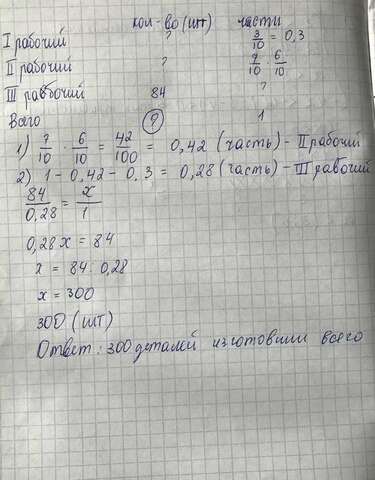 кол-во (шт) части
I рабочий ? 3/10 = 0,3
II рабочий ? 7/10 · 6/10
III рабочий 84 ?
Всего ? 1
1) 7/10 · 6/10 = 42/100 = 0,42 (часть) - II рабочий
2) 1 - 0,42 - 0,3 = 0,28 (часть) - III рабочий
84/0,28 = x/1
0,28 x = 84
x = 84 : 0,28
x = 300
300 (шт)
Ответ : 300 деталей изготовили всего